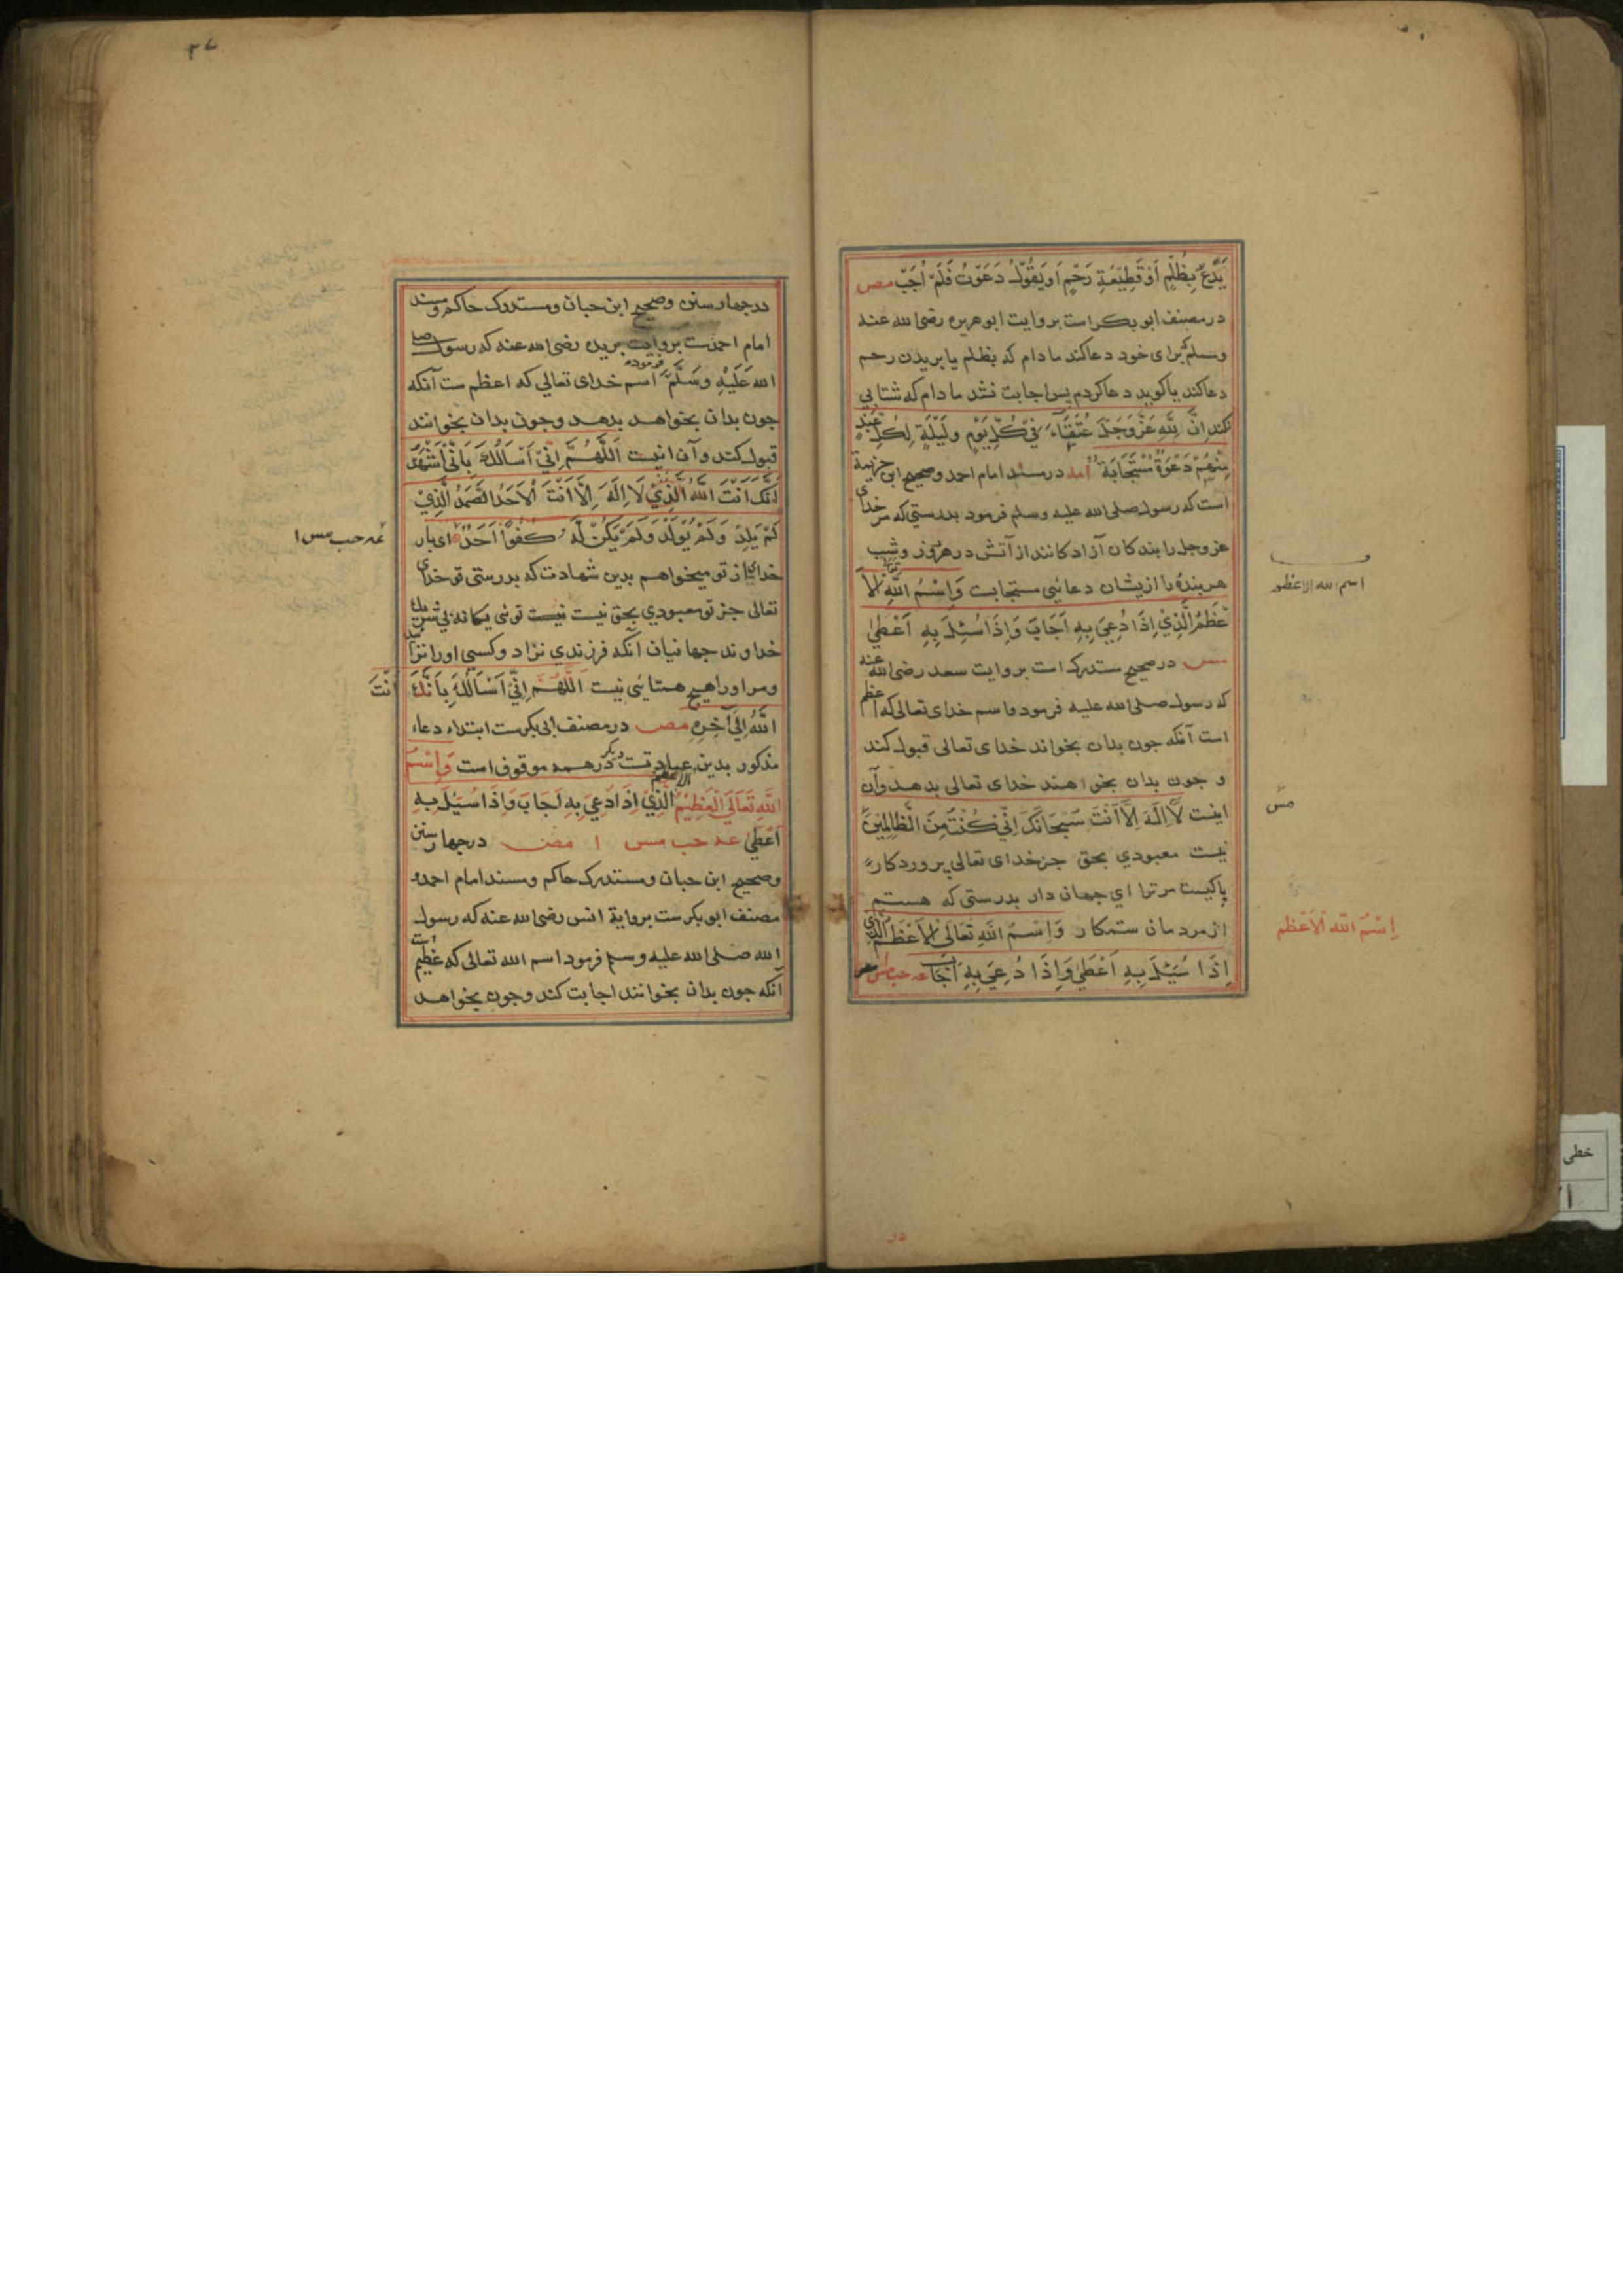 يَدْعُ بِظُلْمٍ اَوْ قَطِيْعَةِ رَحْمٍ اَوْ يَقُوْلُ دَعَوْتُ فَلَمْ اُجَبْ مص
در مصنف ابو بکر است بروایت ابوهریره رضی الله عنه
وسلم برای خود دعا کند مادام که بظلم یا بریدن رحم
دعا کند یا کوید دعا کردم پس اجابت نشد مادام که شتابی
نکند اِنَّ لِلّٰهِ عَزَّوَجَلَّ عُتَقَآءَ فِيْ كُلِّ يَوْمٍ وَلَيْلَةٍ لِكُلِّ عَبْدٍ
مِنْهُمْ دَعْوَةٌ مُسْتَجَابَةٌ در مسند امام احمد وصحیح ابن خزیمة
است که رسول صلی الله علیه وسلم فرمود بدرستی که مر خدای
عزوجل را بندکان آزاد کانند از آتش در هر روز وشب
هر بنده را ازیشان دعائیی مستجابت وَاِسْمُ اللّٰهِ تعالی الْاَ
عْظَمُ الَّذِيْ اِذَا دُعِيَ بِهِ اَجَابَ وَاِذَا سُئِلَ بِهِ اَعْطٰي
مس در صحیح مستدرک است بروایت سعد رضی الله عنه
که رسول صلی الله علیه فرمود واسم خدای تعالی که اعظم
است آنکه جون بدان بخواند خدای تعالی قبول کند
و جون بدان بخواهند خدای تعالی بدهد وآن
اینست لَا اِلٰهَ اِلَّا اَنْتَ سُبْحَانَكَ اِنِّيْ كُنْتُ مِنَ الظَّالِمِيْنَ
نیست معبودی بحق جز خدای تعالی پروردکار
پاکیست مر ترا ای جهان دار بدرستی که هستم
از مردمان ستمکار وَاِسْمُ اللّٰهِ تَعَالَى الْاَعْظَمُ الَّذِي
اِذَا سُئِلَ بِهِ اَعْطٰي وَاِذَا دُعِيَ بِهِ اَجَابَ عه حب مس
اسم الله الاعظم
مس
اِسْمُ اللّٰهِ الْاَعْظَم
در جهار سنن وصحیح ابن حبان ومستدرک حاکم ومسند
امام احمدست بروایت بریده رضی الله عنه که رسول صلی
الله عَلَيْهِ وَسَلَّمَ فرموده اسم خدای تعالی که اعظم ست آنکه
جون بدان بخواهد بدهد وجون بدان بخوانند
قبول کند وآن اینست اَللّٰهُمَّ اِنِّيْ اَسْاَلُكَ بِاَنِّيْ اَشْهَدُ
اَنَّكَ اَنْتَ اللّٰهُ الَّذِيْ لَا اِلٰهَ اِلَّا اَنْتَ الْاَحَدُ الصَّمَدُ الَّذِيْ
لَمْ يَلِدْ وَلَمْ يُوْلَدْ وَلَمْ يَكُنْ لَهُ كُفُوًا اَحَدٌ ای بار
خدای از تو میخواهم بدین شهادت که بدرستی تو خدای
تعالی جز تو معبودی بحق نیست نیست توئی یکانه بی شریك
خداوند جهانیان آنکه فرزندی نزاد وکسی اورا نزاید
ومر اورا هیچ همتائی نیست اَللّٰهُمَّ اِنِّيْ اَسْاَلُكَ بِاَنَّكَ اَنْتَ
اللّٰهُ اِلٰي آخِرِهِ مص در مصنف ابی بکرست ابتداء دعاء
مذکور بدین عبارتست دیکر در همه موقوف است وَاِسْمُ
اللّٰهِ تَعَالَى الْعَظِيْمُ الاعظم الَّذِيْ اِذَا دُعِيَ بِهِ اَجَابَ وَاِذَا سُئِلَ بِهِ
اَعْطٰي عه حب مس ا مص در جهار سنن
وصحیح ابن حبان ومستدرک حاکم ومسند امام احمد و
مصنف ابو بکرست بروایة انس رضی الله عنه که رسول
الله صلی الله علیه وسلم فرمود اسم الله تعالی که عظیم است
آنکه جون بدان بخوانند اجابت کند وجون بخواهد
عه حب مس ا
خطی